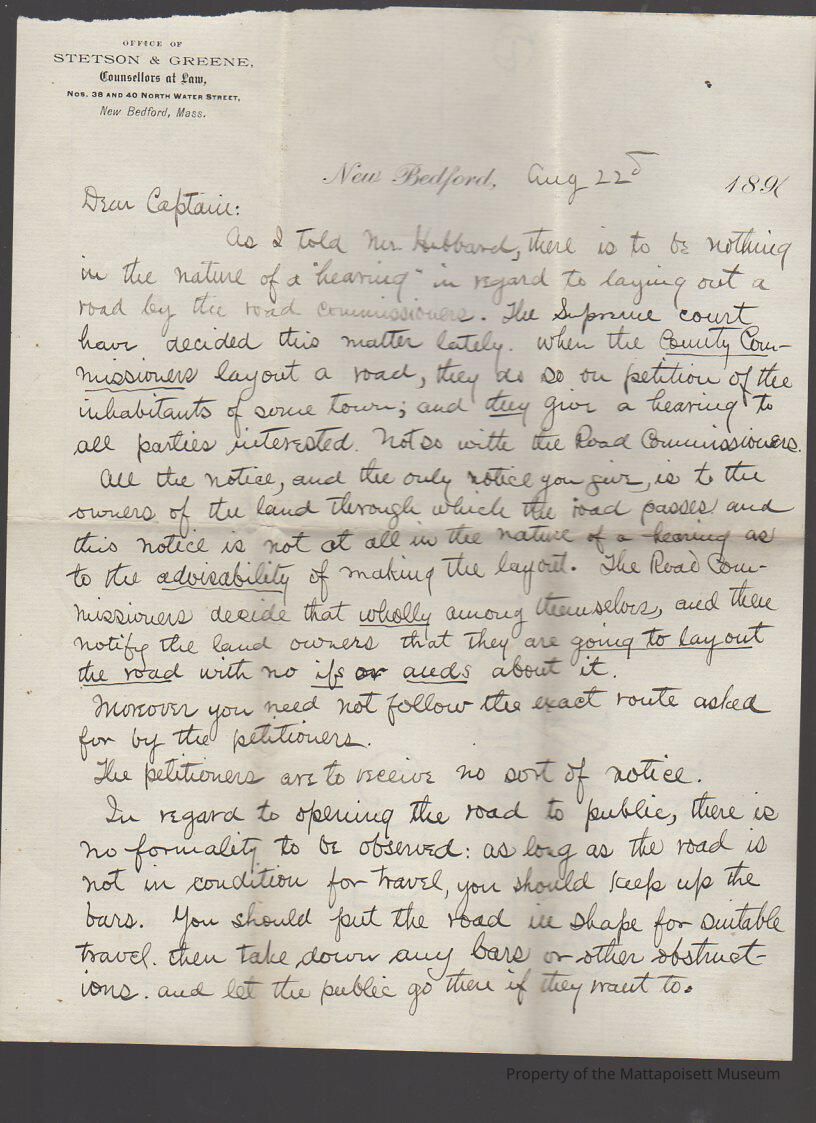 OFFICE OF
STETSON & GREENE,
Counsellors at Law,
Nos. 38 AND 40 NORTH WATER STREET,
New Bedford, Mass.
New Bedford, Aug 22d 189
Dear Captain:
As I told Mr. Hubbard, there is to be nothing
in the nature of a "hearing" in regard to laying out a
road by the road commissioners. The Supreme court
have decided this matter lately. When the County Com-
missioners layout a road, they do so on petition of the
inhabitants of some town; and they give a hearing to
all parties interested. Not so with the Road Commissioners.
All the notice, and the only notice you give, is to the
owners of the land through which the road passes and
this notice is not at all in the nature of a hearing as
to the advisability of making the layout. The Road Com-
missioners decide that wholly among themselves, and then
notify the land owners that they are going to lay out
the road with no ifs or ands about it.
Moreover you need not follow the exact route asked
for by the petitioners.
The petitioners are to receive no sort of notice.
In regard to opening the road to public, there is
no formality to be observed: as long as the road is
not in condition for travel, you should keep up the
bars. You should put the road in shape for suitable
travel. then take down any bars or other obstruct-
ions. and let the public go there if they want to.
Property of the Mattapoisett Museum